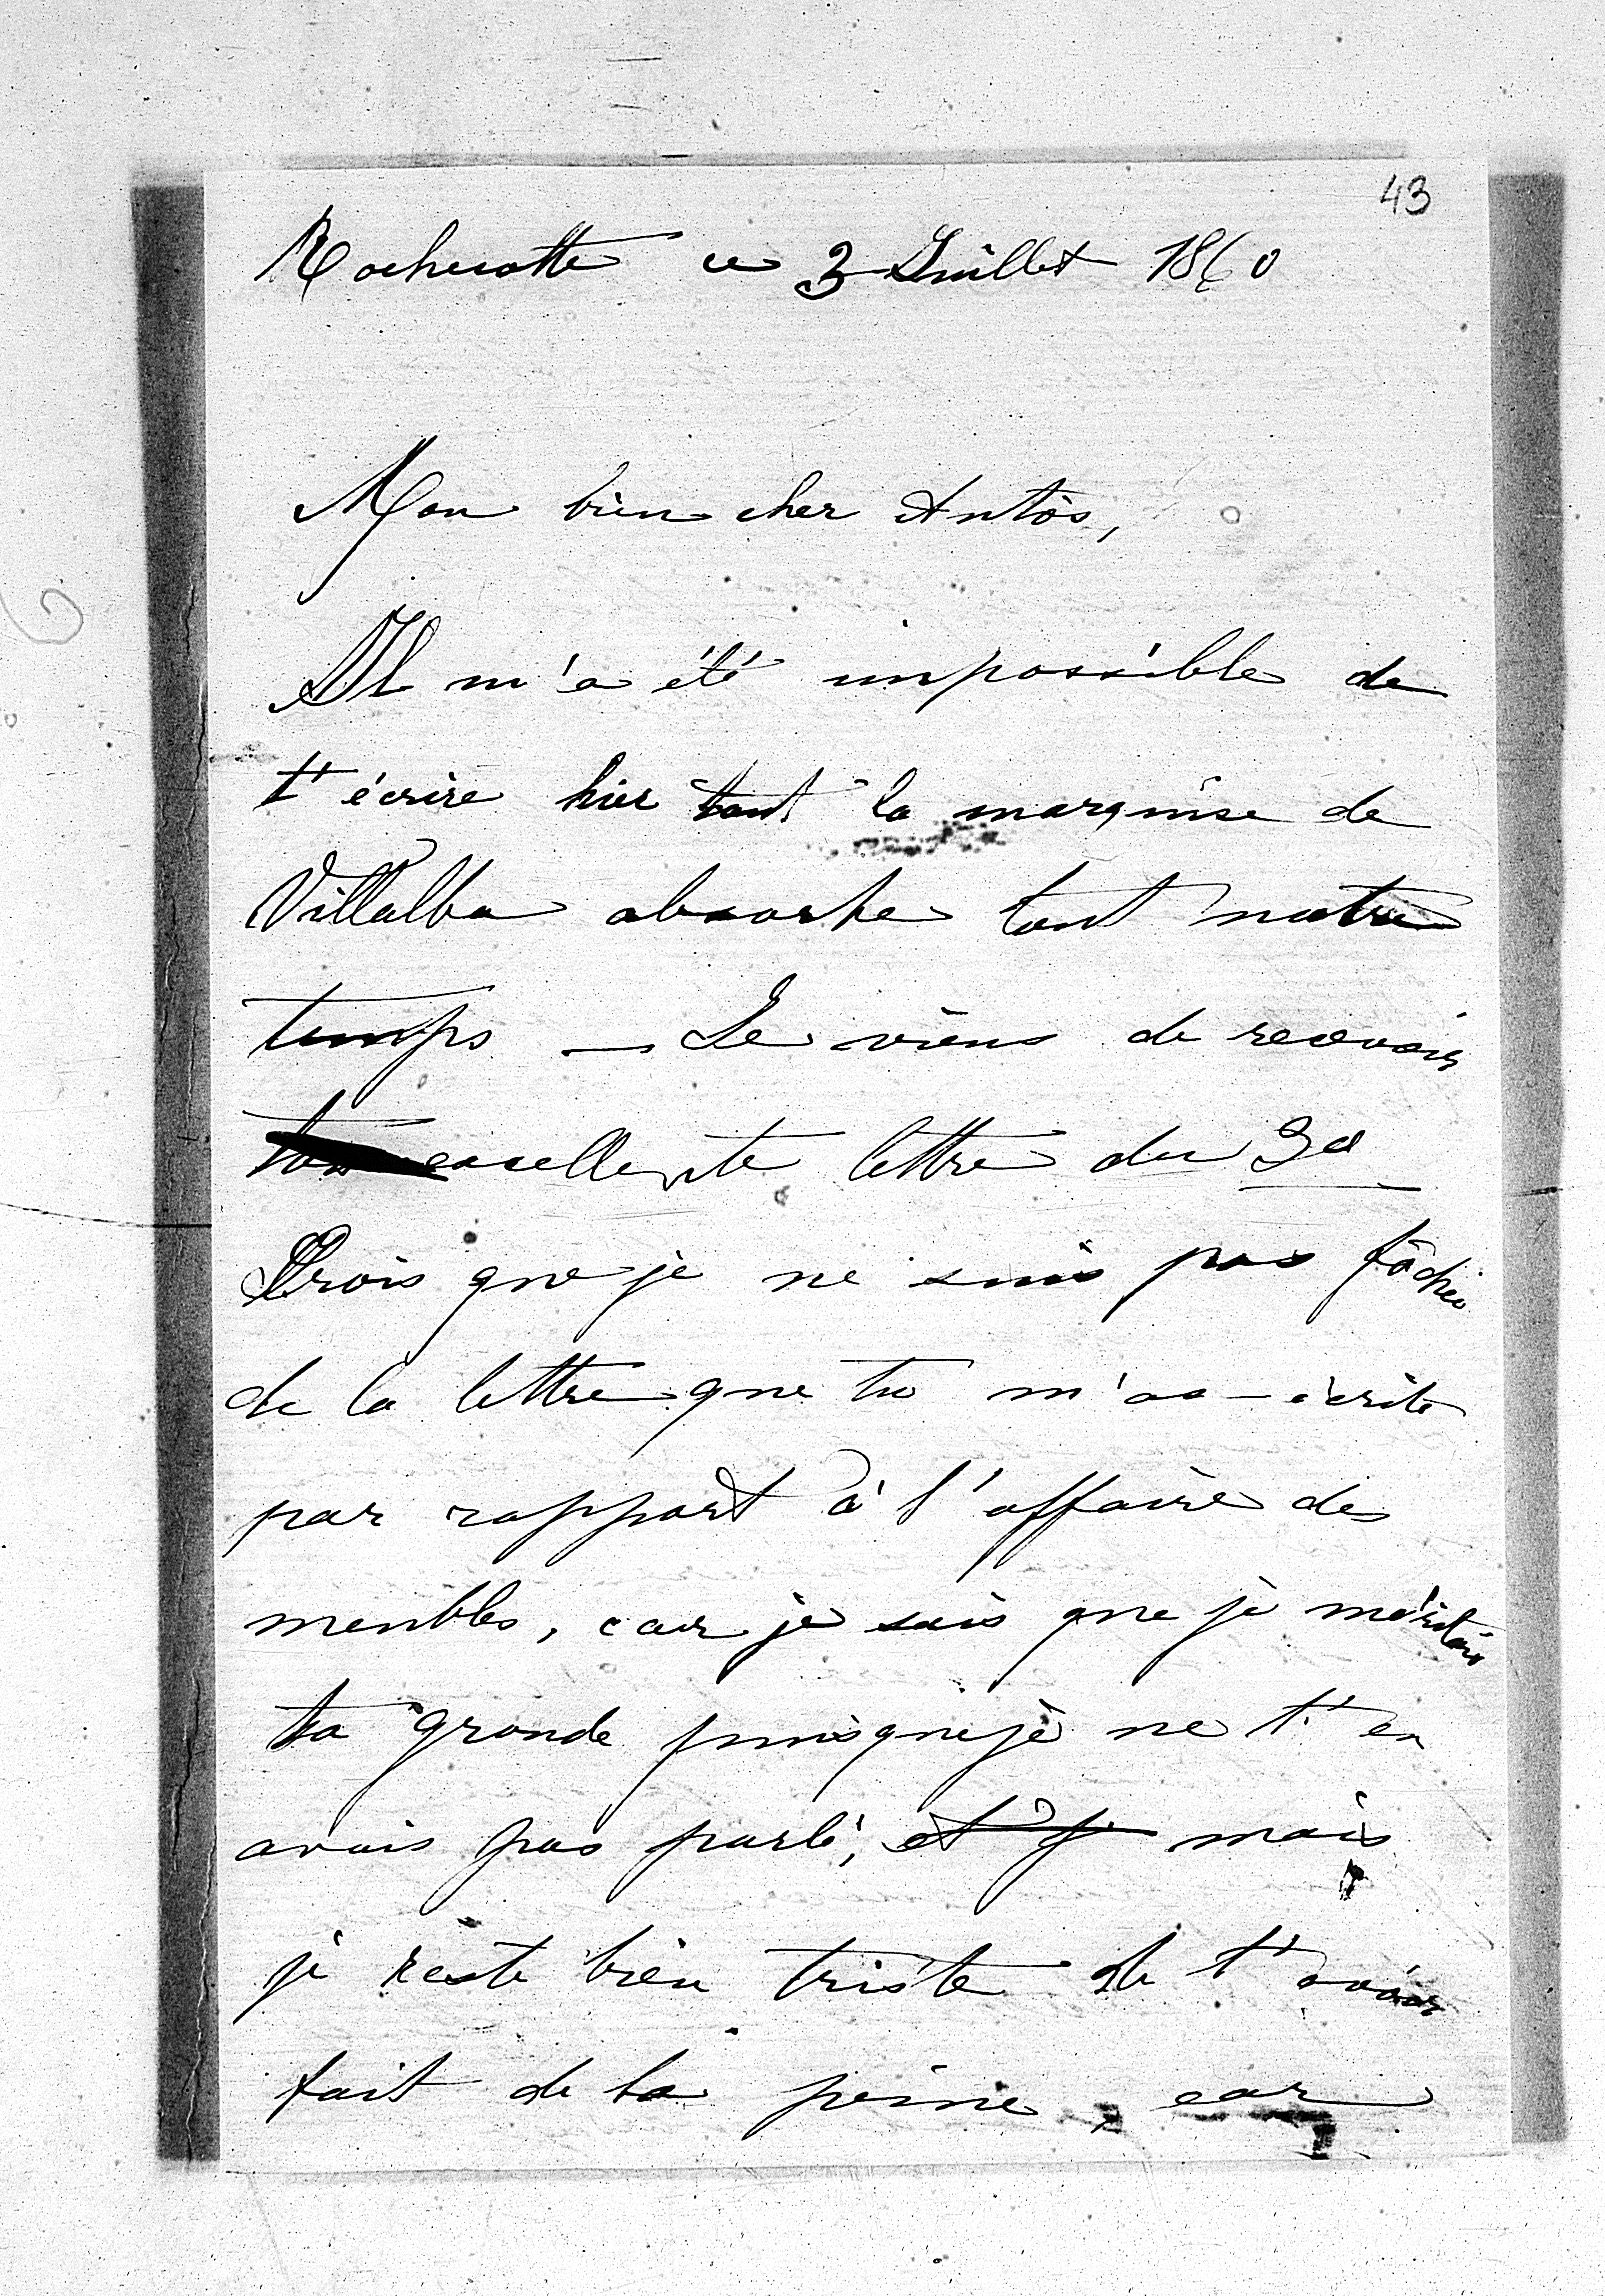 43
Rochecotte ce 3 Juillet 1860
Mon bien cher Antoś,
Il m'a été impossible de
t'écrire hier tant la marquise de
Villalba absorbe tout notre
temps — Je viens de recevoir
ton excellente lettre du 30
Crois que je ne suis pas fâchée
de la lettre que tu m'as écrite
par rapport à l'affaire des
meubles, car je sais que je méritais
ta gronde puisque je ne t'en
avais pas parlé, et j mais
je reste bien triste de t'avoir
fait de la peine, car